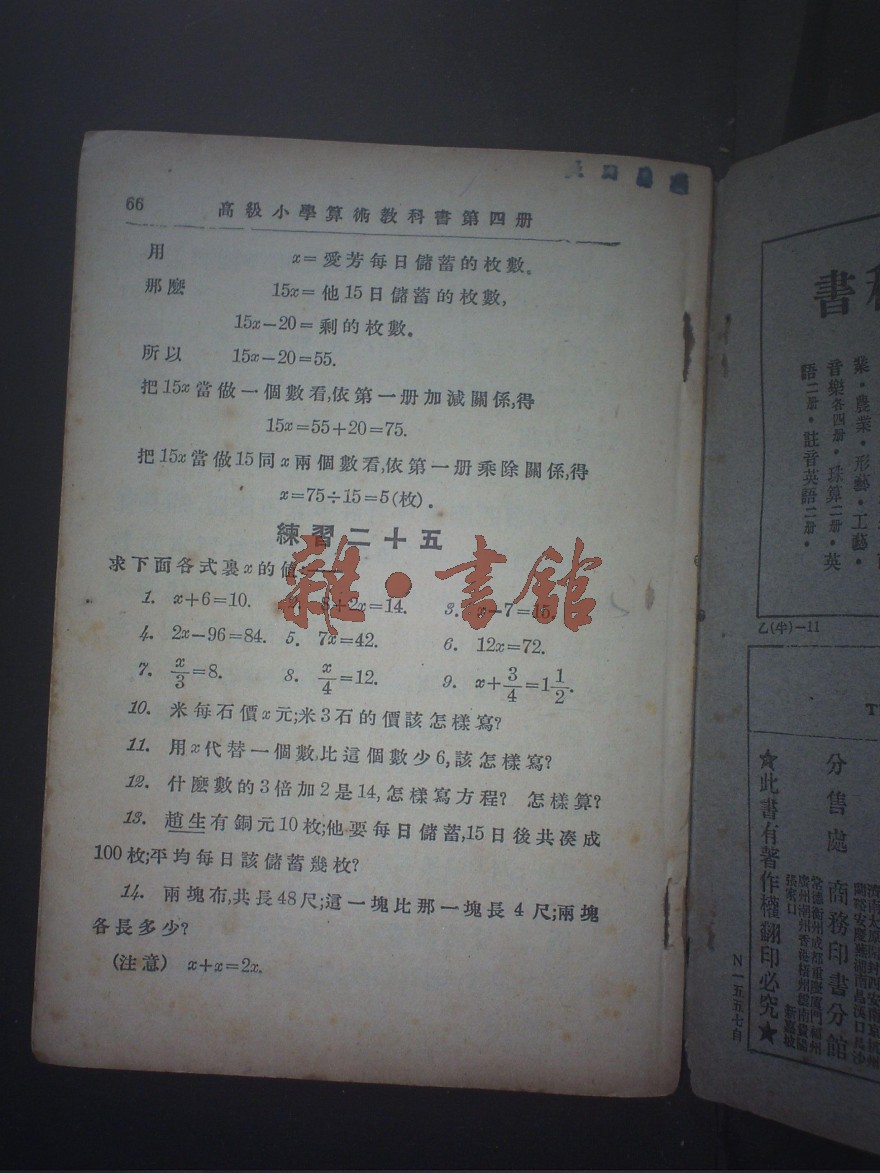 66 高級小學算術教科書第四册
用 x=愛芳每日儲蓄的枚數。
那麽 15x=他15日儲蓄的枚數,
15x-20=剩的枚數。
所以 15x-20=55.
把15x當做一個數看,依第一册加減關係,得
15x=55+20=75.
把15x當做15同x兩個數看,依第一册乘除關係,得
x=75÷15=5(枚).
練習二十五
求下面各式裏x的值:——
1. x+6=10. 2. 8+2x=14. 3. x-7=15.
4. 2x-96=84. 5. 7x=42. 6. 12x=72.
7. x/3=8. 8. x/4=12. 9. x+3/4=1 1/2.
10. 米每石價x元;米3石的價該怎樣寫?
11. 用x代替一個數,比這個數少6,該怎樣寫?
12. 什麽數的3倍加2是14,怎樣寫方程? 怎樣算?
13. 趙生有銅元10枚;他要每日儲蓄,15日後共湊成
100枚;平均每日該儲蓄幾枚?
14. 兩塊布,共長48尺;這一塊比那一塊長4尺;兩塊
各長多少?
(注意) x+x=2x.
雜·書館
書科
業·農業·形藝·工藝·
音樂各四册·珠算二册·英
語二册·註音英語二册·
乙(半)—11
分售處 商務印書分館
★此書有著作權翻印必究★
N一五五七自